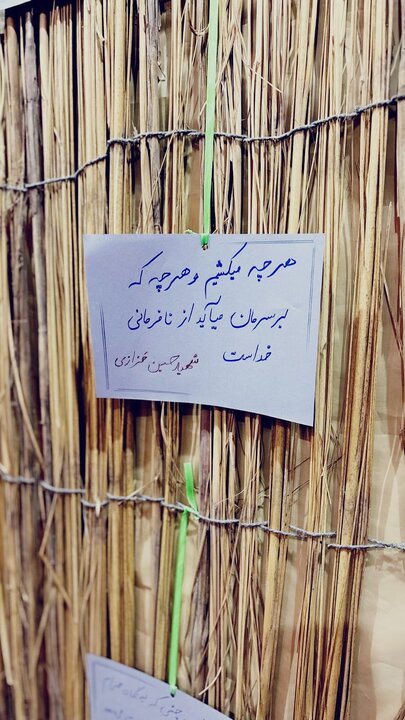 هرچه میکشیم و هرچه که
بر سرمان میآید از نافرمانی
خداست
شهید حسین خرازی
که نگاه حرام